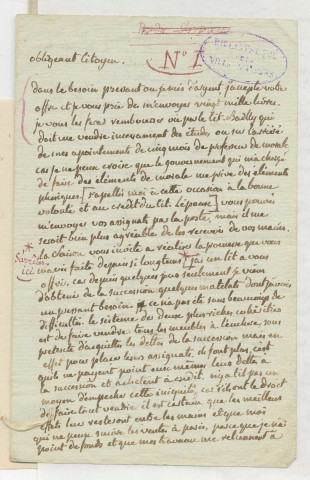 N° 1
BIBLIOTHÈQUE
DE LA
VILLE
obligeant citoyen.
Dans le besoin pressant ou je suis d'argent j'accepte votre
offre et je vous prie de m'envoyer vingt mille livres.
je vous les feres rembourser ou par le cit. Bailly qui
doit me vendre incessament des études ou sur la série
de mes apointements de cinq mois de profeseur de morale
car je ne peux croire que le gouvernement qui m'a chargé
de faire des éléments de morale me prive des elements
phisiques. rapellés moi à cette occasion à la bonne
volonté et au crédit du cit. Lepaux vous pouvés
m'envoyer vos assignats par la poste, mais il me
seroit bien plus agréable de les recevoir de vos mains.
la saison vous invite a réaliser la promesse que vous
m'avés faite depuis si longtems j'ai un lit a vous
offrir, car depuis quelques jours seulement je viens
d'obtenir de la succession quelques matelats dont j'avois
un pressant besoin. ce n'a pas été sans beaucoup de
difficultés. le sisteme des deux plus riches cohéritiers
est de faire vendre tous les meubles à l'enchere, sous
prétexte d'acquitter les dettes de la succession mais en
effet pour placer leurs assignats. ils font plus, c'est
qu'ils ne payent point eux même leur dette à
la succession et achetent à crédit. il n'y a il pas un
moyen d'empecher cette iniquité, car ils ont le droit
de faire tout vendre il est certain que les meilleurs
effets leur resteront entre les mains et que moi
qui ne peux suivre les ventes à paris, parce que je n'ai
point de fonds et que mes travaux me retiennent à
ici